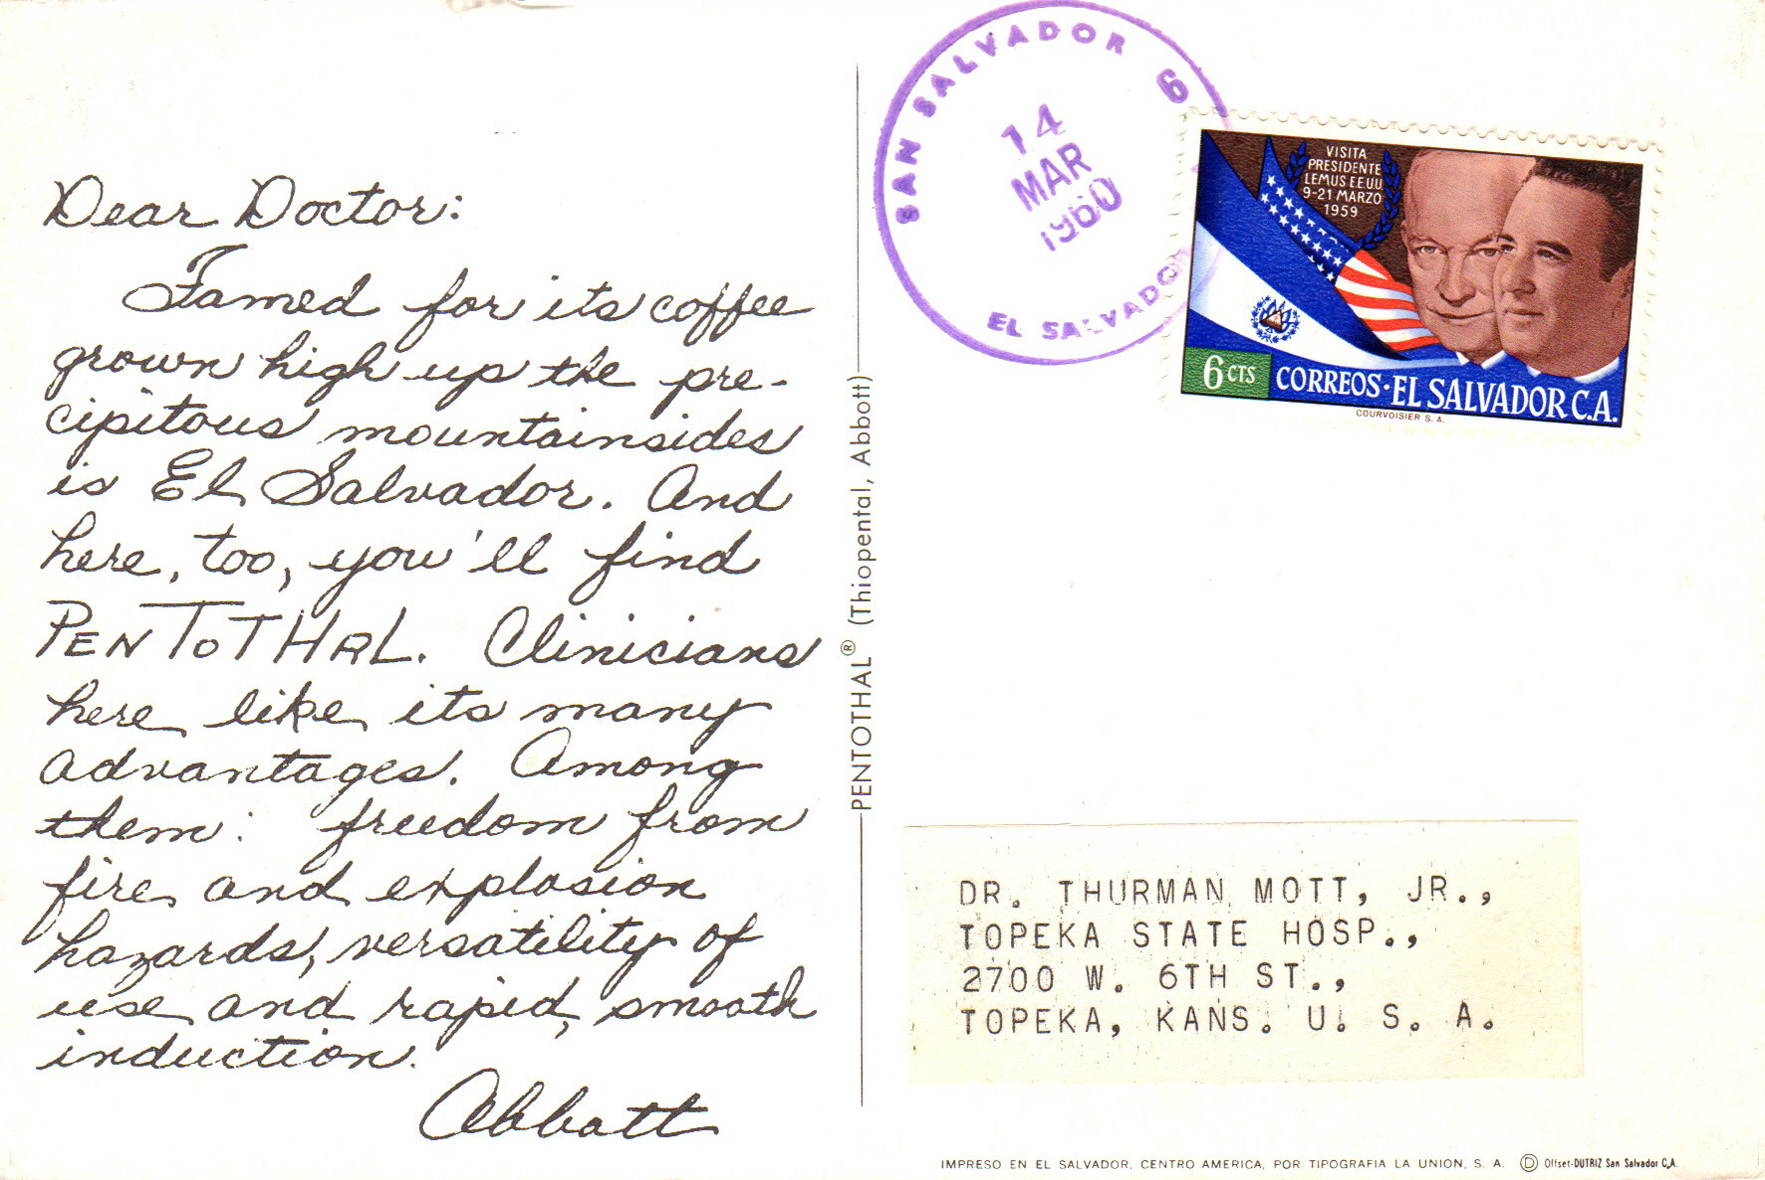 Dear Doctor:
Famed for its coffee
grown high up the pre-
cipitous mountainsides
is El Salvador. And
here, too, you'll find
PENTOTHAL. Clinicians
here like its many
advantages. Among
them: freedom from
fire and explosion
hazards, versatility of
use and rapid, smooth
induction.
Abbott
PENTOTHAL® (Thiopental, Abbott)
SAN SALVADOR 6
14
MAR
1960
EL SALVADOR
VISITA
PRESIDENTE
LEMUS EE.UU.
9-21 MARZO
1959
6 CTS
CORREOS·EL SALVADOR C.A.
COURVOISIER S. A.
DR. THURMAN MOTT, JR.,
TOPEKA STATE HOSP.,
2700 W. 6TH ST.,
TOPEKA, KANS. U. S. A.
IMPRESO EN EL SALVADOR, CENTRO AMERICA, POR TIPOGRAFIA LA UNION, S. A. D Offset-DUTRIZ San Salvador C.A.